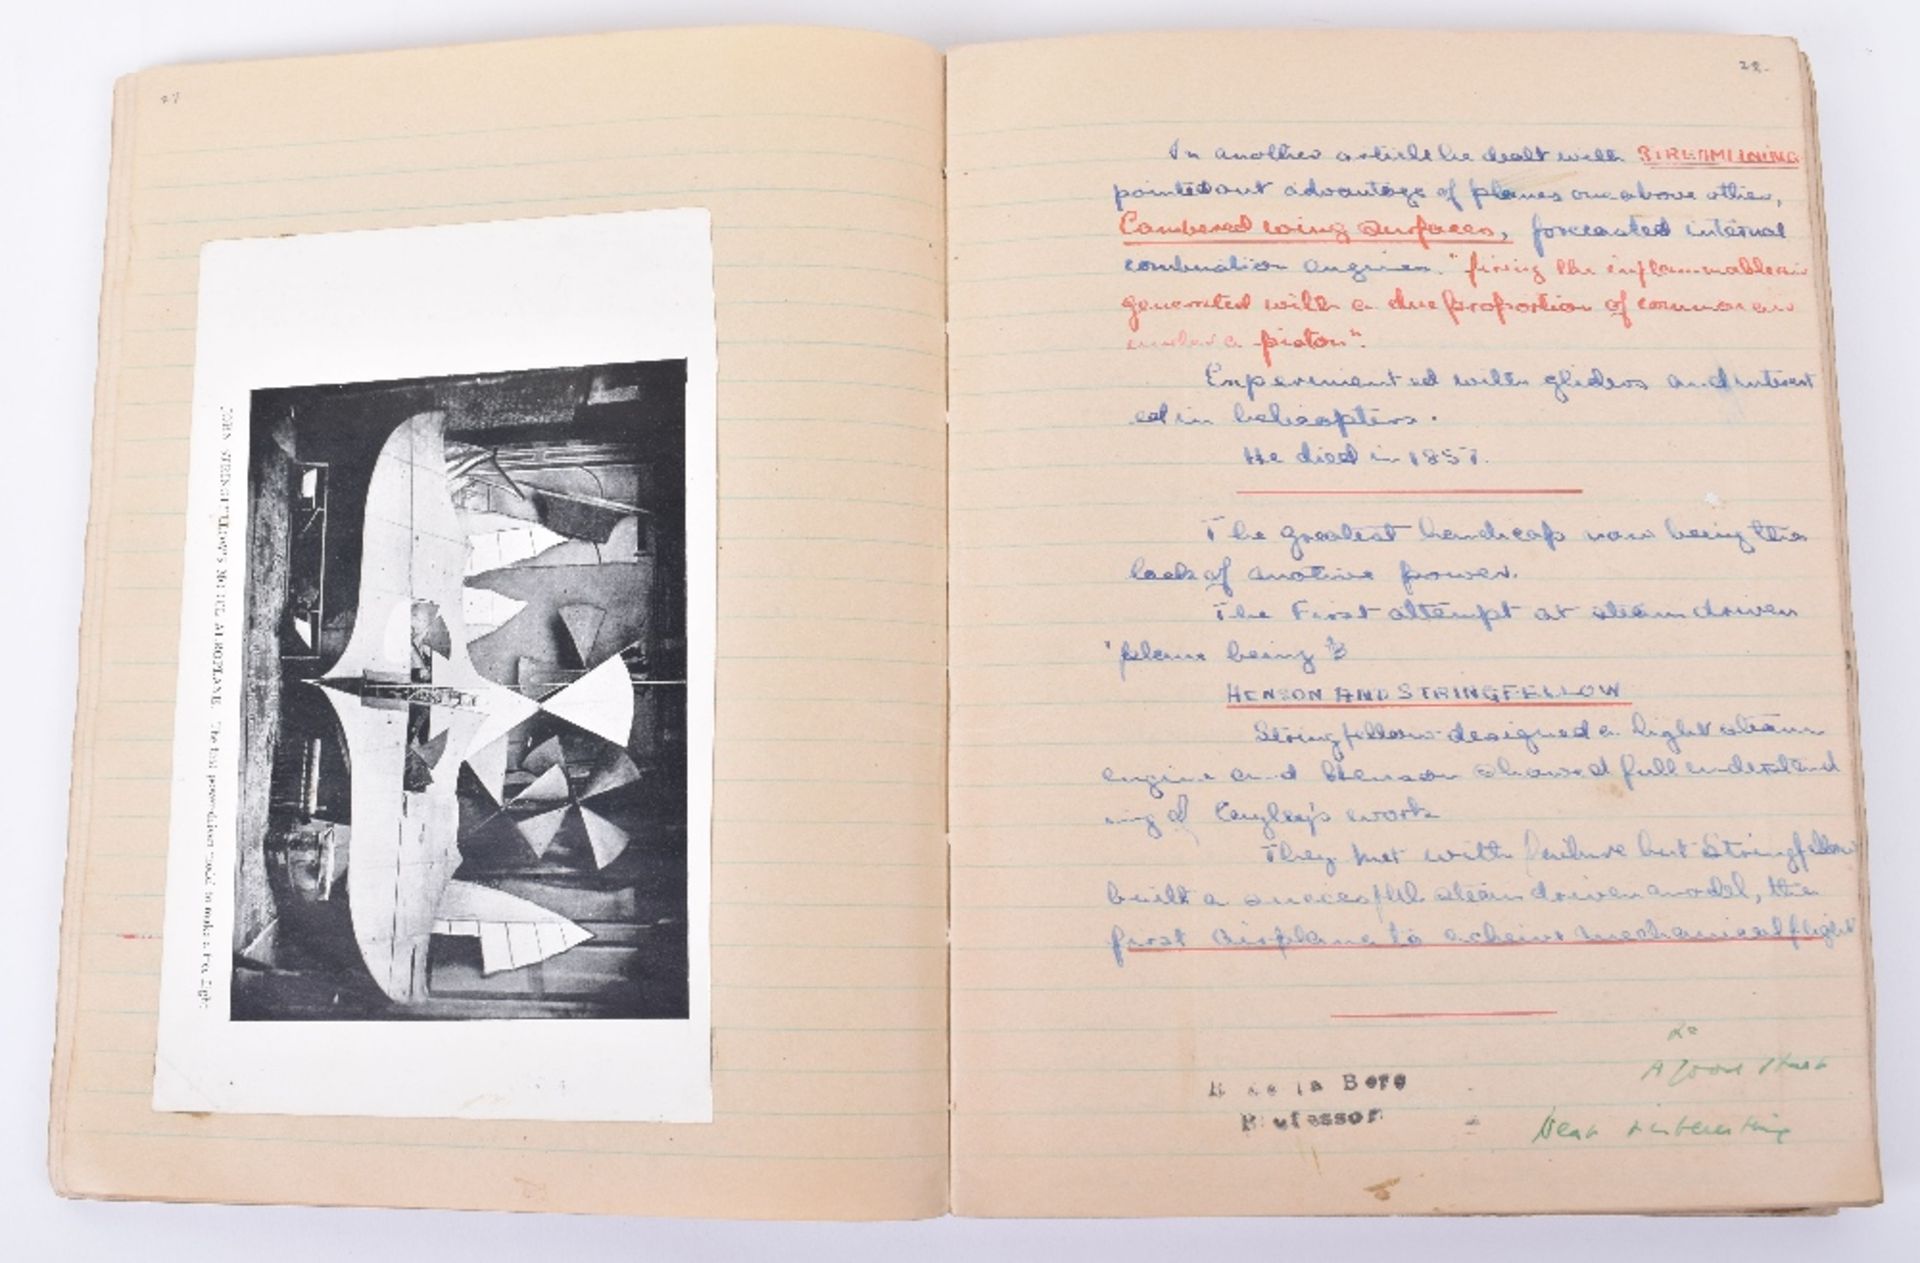 27
JOHN STRINGFELLOW'S MODEL AEROPLANE. The first power-driven model to make a free flight
28.
In another article he dealt with STREAMLINING
pointed out advantage of planes one above other,
Cambered wing surfaces, forecasted internal
combustion engines. "firing the inflammable air
generated with a due proportion of common air
under a piston".
Experiment ed with gliders and interest
ed in helicopters.
He died in 1857.
The greatest handicap now being the
lack of motive power.
The First attempt at steam driven
'plane being by
HENSON AND STRINGFELLOW
Stringfellow designed a light steam
engine and Henson showed full understand
ing of Cayley's work
They met with failure but Stringfellow
built a successful steam driven model, the
first airplane to acheive mechanical flight
A Good Start
R de la Bere
Professor
Neat & interesting